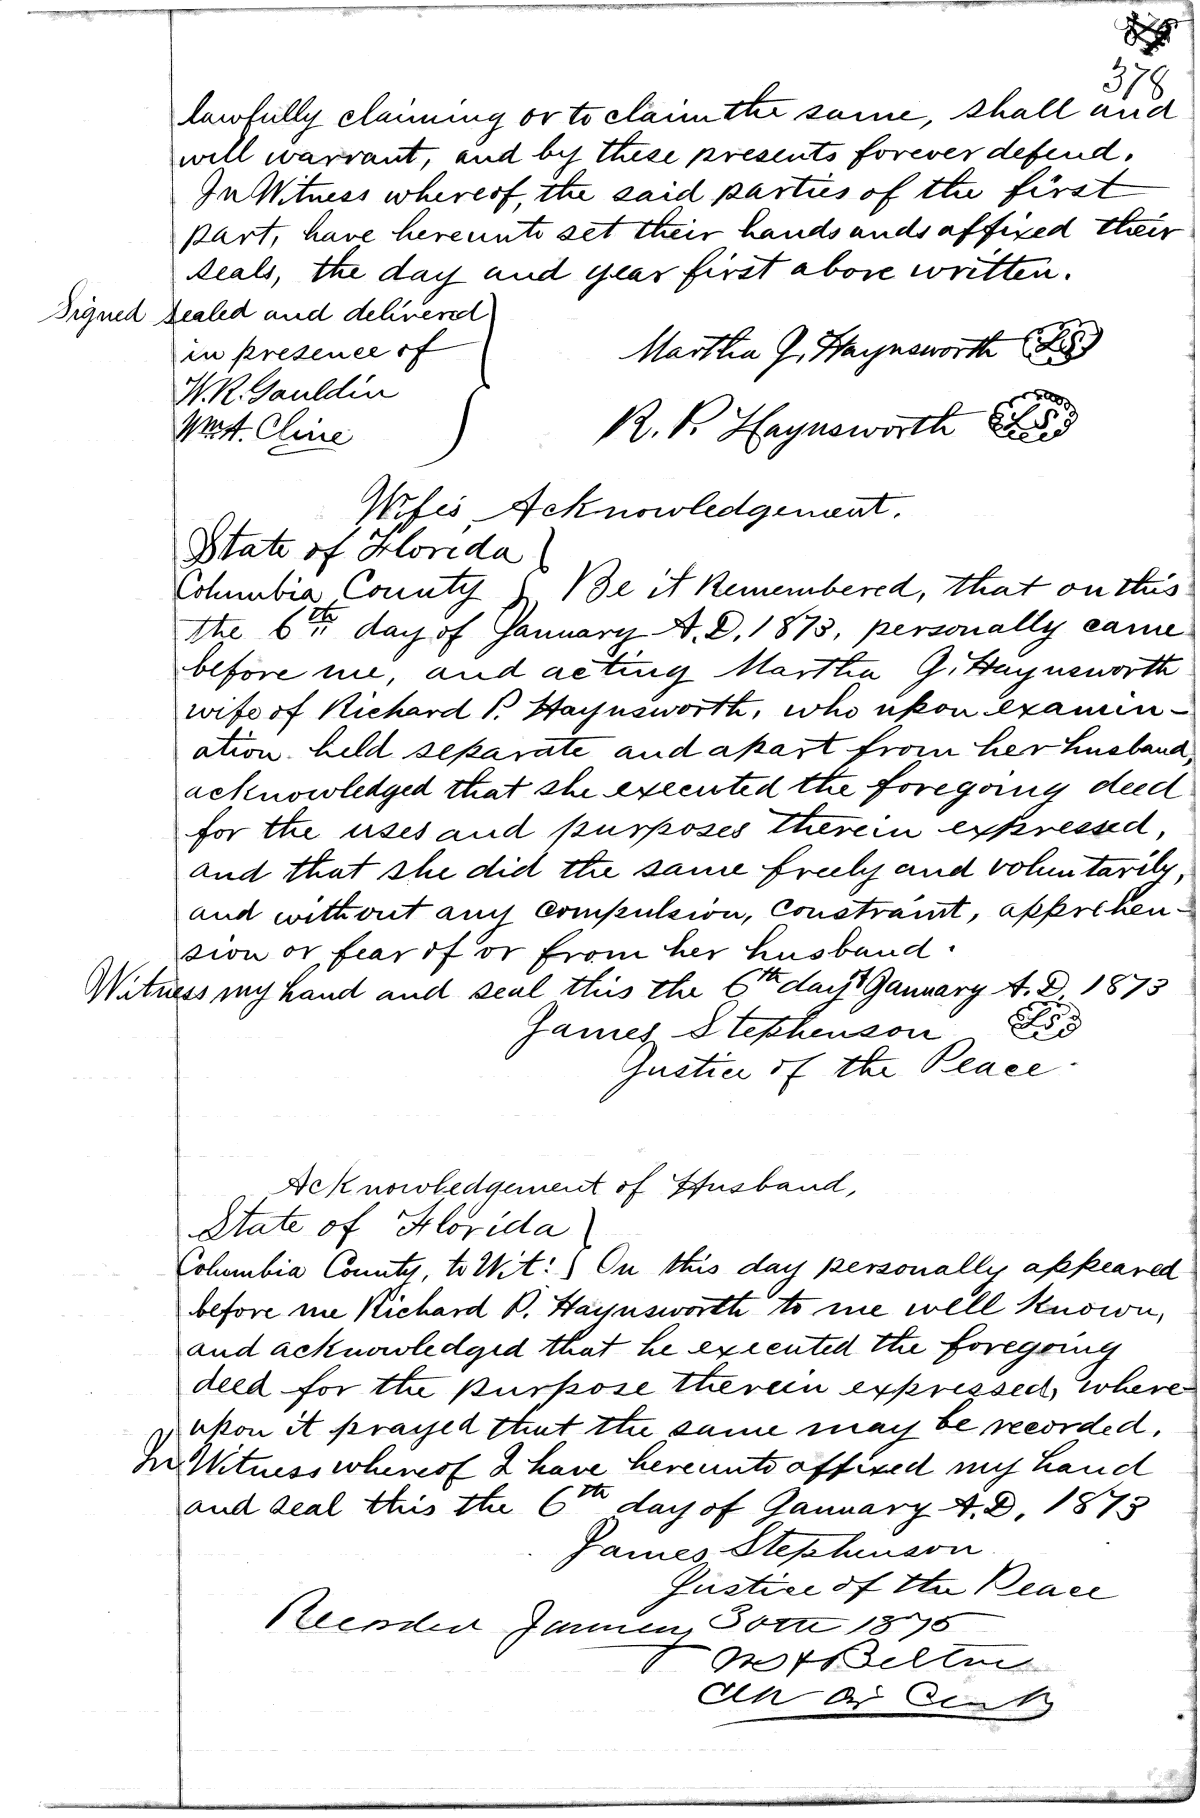 378
lawfully claiming or to claim the same, shall and
will warrant, and by these presents forever defend.
In Witness whereof, the said parties of the first
part, have hereunto set their hands ands affixed their
seals, the day and year first above written.
Signed sealed and delivered
in presence of
Martha G. Haynsworth L.S.
W.R. Gauldin
Wm A. Cline
R. P. Haynsworth L.S.
Wife's Acknowledgement.
State of Florida
Columbia County Be it Remembered, that on this
the 6th day of January A.D. 1873, personally came
before me, and acting Martha G. Haynsworth
wife of Richard P. Haynsworth, who upon examin-
ation held separate and apart from her husband,
acknowledged that she executed the foregoing deed
for the uses and purposes therein expressed,
and that she did the same freely and voluntarily,
and without any compulsion, constraint, apprehen-
sion or fear of or from her husband.
Witness my hand and seal this the 6th day of January A.D. 1873
James Stephenson L.S.
Justice of the Peace.
Acknowledgement of Husband,
State of Florida
Columbia County, to Wit: On this day personally appeared
before me Richard P. Haynsworth to me well known,
and acknowledged that he executed the foregoing
deed for the purpose therein expressed, where-
upon it prayed that the same may be recorded.
In Witness whereof I have hereunto affixed my hand
and seal this the 6th day of January A.D. 1873
James Stephenson
Justice of the Peace
Recorded January 30th 1875
Clk Cir